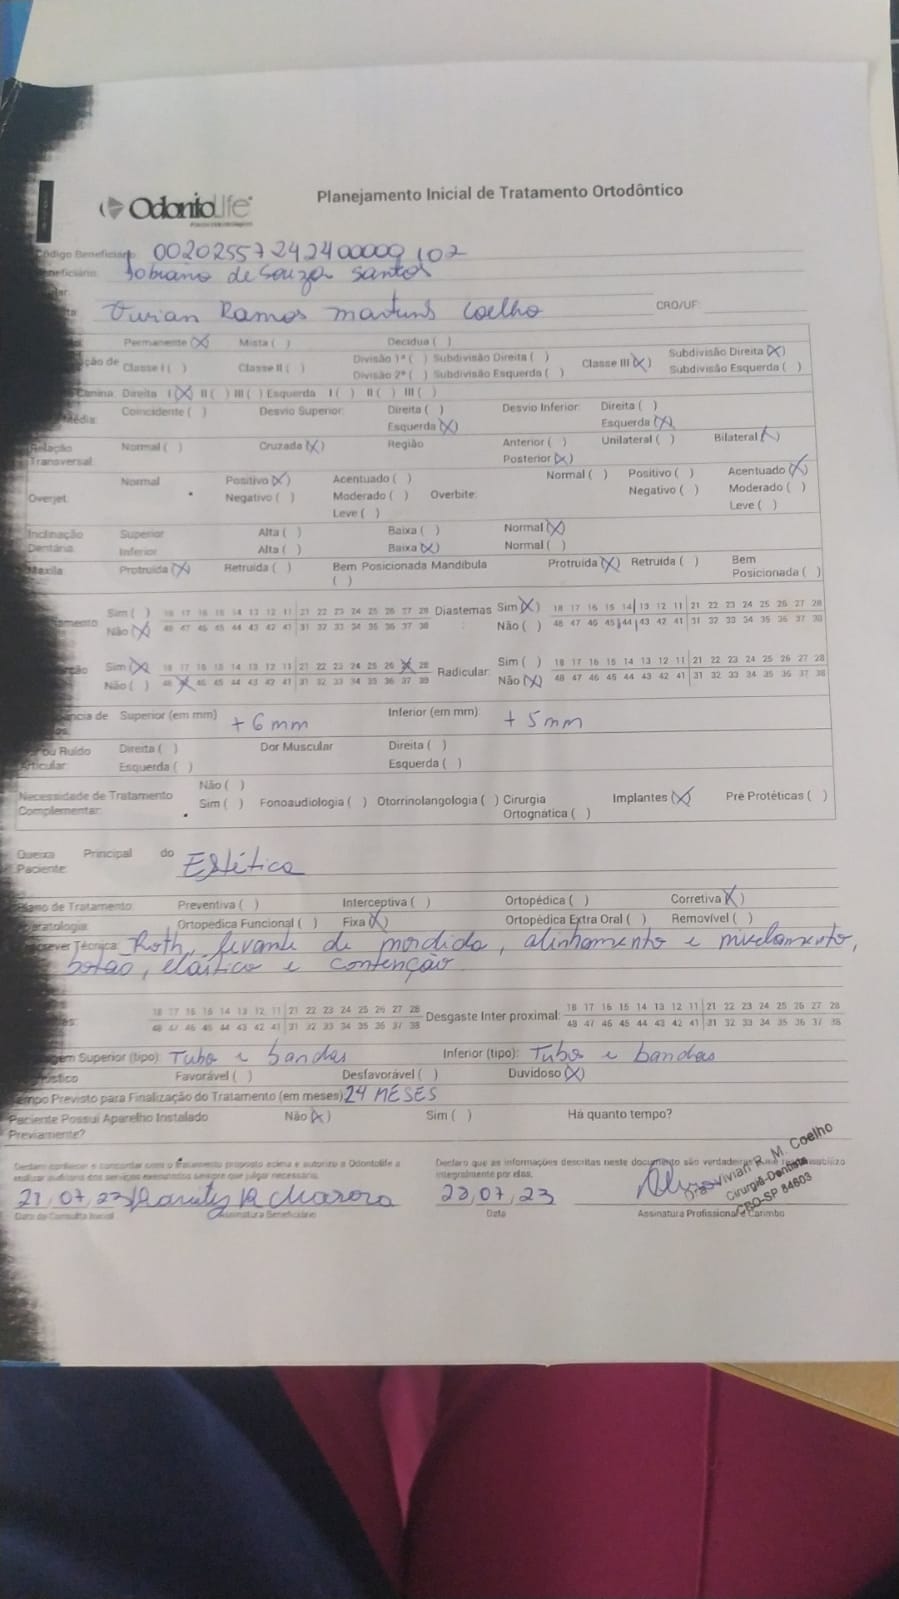 OdontoLife
Planejamento Inicial de Tratamento Ortodôntico
Código Beneficiário: 00202557242400000 102
Beneficiário: de Souza Santos
Ramos Martins Coelho CRO/UF:
Permanente (X) Mista ( ) Decídua ( )
ção de Classe I ( ) Classe II ( ) Divisão 1ª ( ) Subdivisão Direita ( ) Classe III (X) Subdivisão Direita (X)
Divisão 2ª ( ) Subdivisão Esquerda ( ) Subdivisão Esquerda ( )
Canina: Direita I (X) II ( ) III ( ) Esquerda I ( ) II ( ) III ( )
Média: Coincidente ( ) Desvio Superior: Direita ( ) Desvio Inferior: Direita ( )
Esquerda (X) Esquerda (X)
Relação Transversal: Normal ( ) Cruzada (X) Região Anterior ( ) Unilateral ( ) Bilateral (X)
Posterior (X)
Overjet: Normal Positivo (X) Acentuado ( ) Overbite: Normal ( ) Positivo ( ) Acentuado (X)
Negativo ( ) Moderado ( ) Negativo ( ) Moderado ( )
Leve ( ) Leve ( )
Inclinação Dentária: Superior Alta ( ) Baixa ( ) Normal (X)
Inferior Alta ( ) Baixa (X) Normal ( )
Maxila Protruída (X) Retruída ( ) Bem Posicionada ( ) Mandíbula Protruída (X) Retruída ( ) Bem Posicionada ( )
Sim ( ) 18 17 16 15 14 13 12 11 21 22 23 24 25 26 27 28 Diastemas Sim (X) 18 17 16 15 14 13 12 11 21 22 23 24 25 26 27 28
Não (X) 48 47 46 45 44 43 42 41 31 32 33 34 35 36 37 38 Não ( ) 48 47 46 45 44 43 42 41 31 32 33 34 35 36 37 38
Sim (X) 18 17 16 15 14 13 12 11 21 22 23 24 25 26 X 28 Radicular: Sim ( ) 18 17 16 15 14 13 12 11 21 22 23 24 25 26 27 28
Não ( ) 48 X 46 45 44 43 42 41 31 32 33 34 35 36 37 38 Não (X) 48 47 46 45 44 43 42 41 31 32 33 34 35 36 37 38
Superior (em mm) + 6 mm Inferior (em mm) + 5 mm
ou Ruído Articular: Direita ( ) Dor Muscular Direita ( )
Esquerda ( ) Esquerda ( )
Necessidade de Tratamento Complementar: Não ( )
Sim ( ) Fonoaudiologia ( ) Otorrinolangologia ( ) Cirurgia Ortognática ( ) Implantes (X) Pré Protéticas ( )
Queixa Principal do Paciente: Estética
Plano de Tratamento: Preventiva ( ) Interceptiva ( ) Ortopédica ( ) Corretiva (X)
Ortopédica Funcional ( ) Fixa (X) Ortopédica Extra Oral ( ) Removível ( )
Descrever Técnica: Roth, levante de mordida, alinhamento e nivelamento,
botão, elástico e contenção.
18 17 16 15 14 13 12 11 21 22 23 24 25 26 27 28 Desgaste Inter proximal: 18 17 16 15 14 13 12 11 21 22 23 24 25 26 27 28
48 47 46 45 44 43 42 41 31 32 33 34 35 36 37 38 48 47 46 45 44 43 42 41 31 32 33 34 35 36 37 38
Superior (tipo): Tubo e bandas Inferior (tipo): Tubo e bandas
Favorável ( ) Desfavorável ( ) Duvidoso (X)
Tempo Previsto para Finalização do Tratamento (em meses) 24 MESES
Paciente Possui Aparelho Instalado Previamente? Não (X) Sim ( ) Há quanto tempo?
Declaro conhecer e concordar com o tratamento proposto acima e autorizo a Odontolife a Declaro que as informações descritas neste documento são verdadeiras
realizar auditoria dos serviços executados sempre que julgar necessário. integralmente por elas.
21, 07, 23 22, 07, 23 Vivian R. M. Coelho
Cirurgiã-Dentista
CRO-SP 84603
Data da Consulta Inicial Assinatura Beneficiário Data Assinatura Profissional e Carimbo